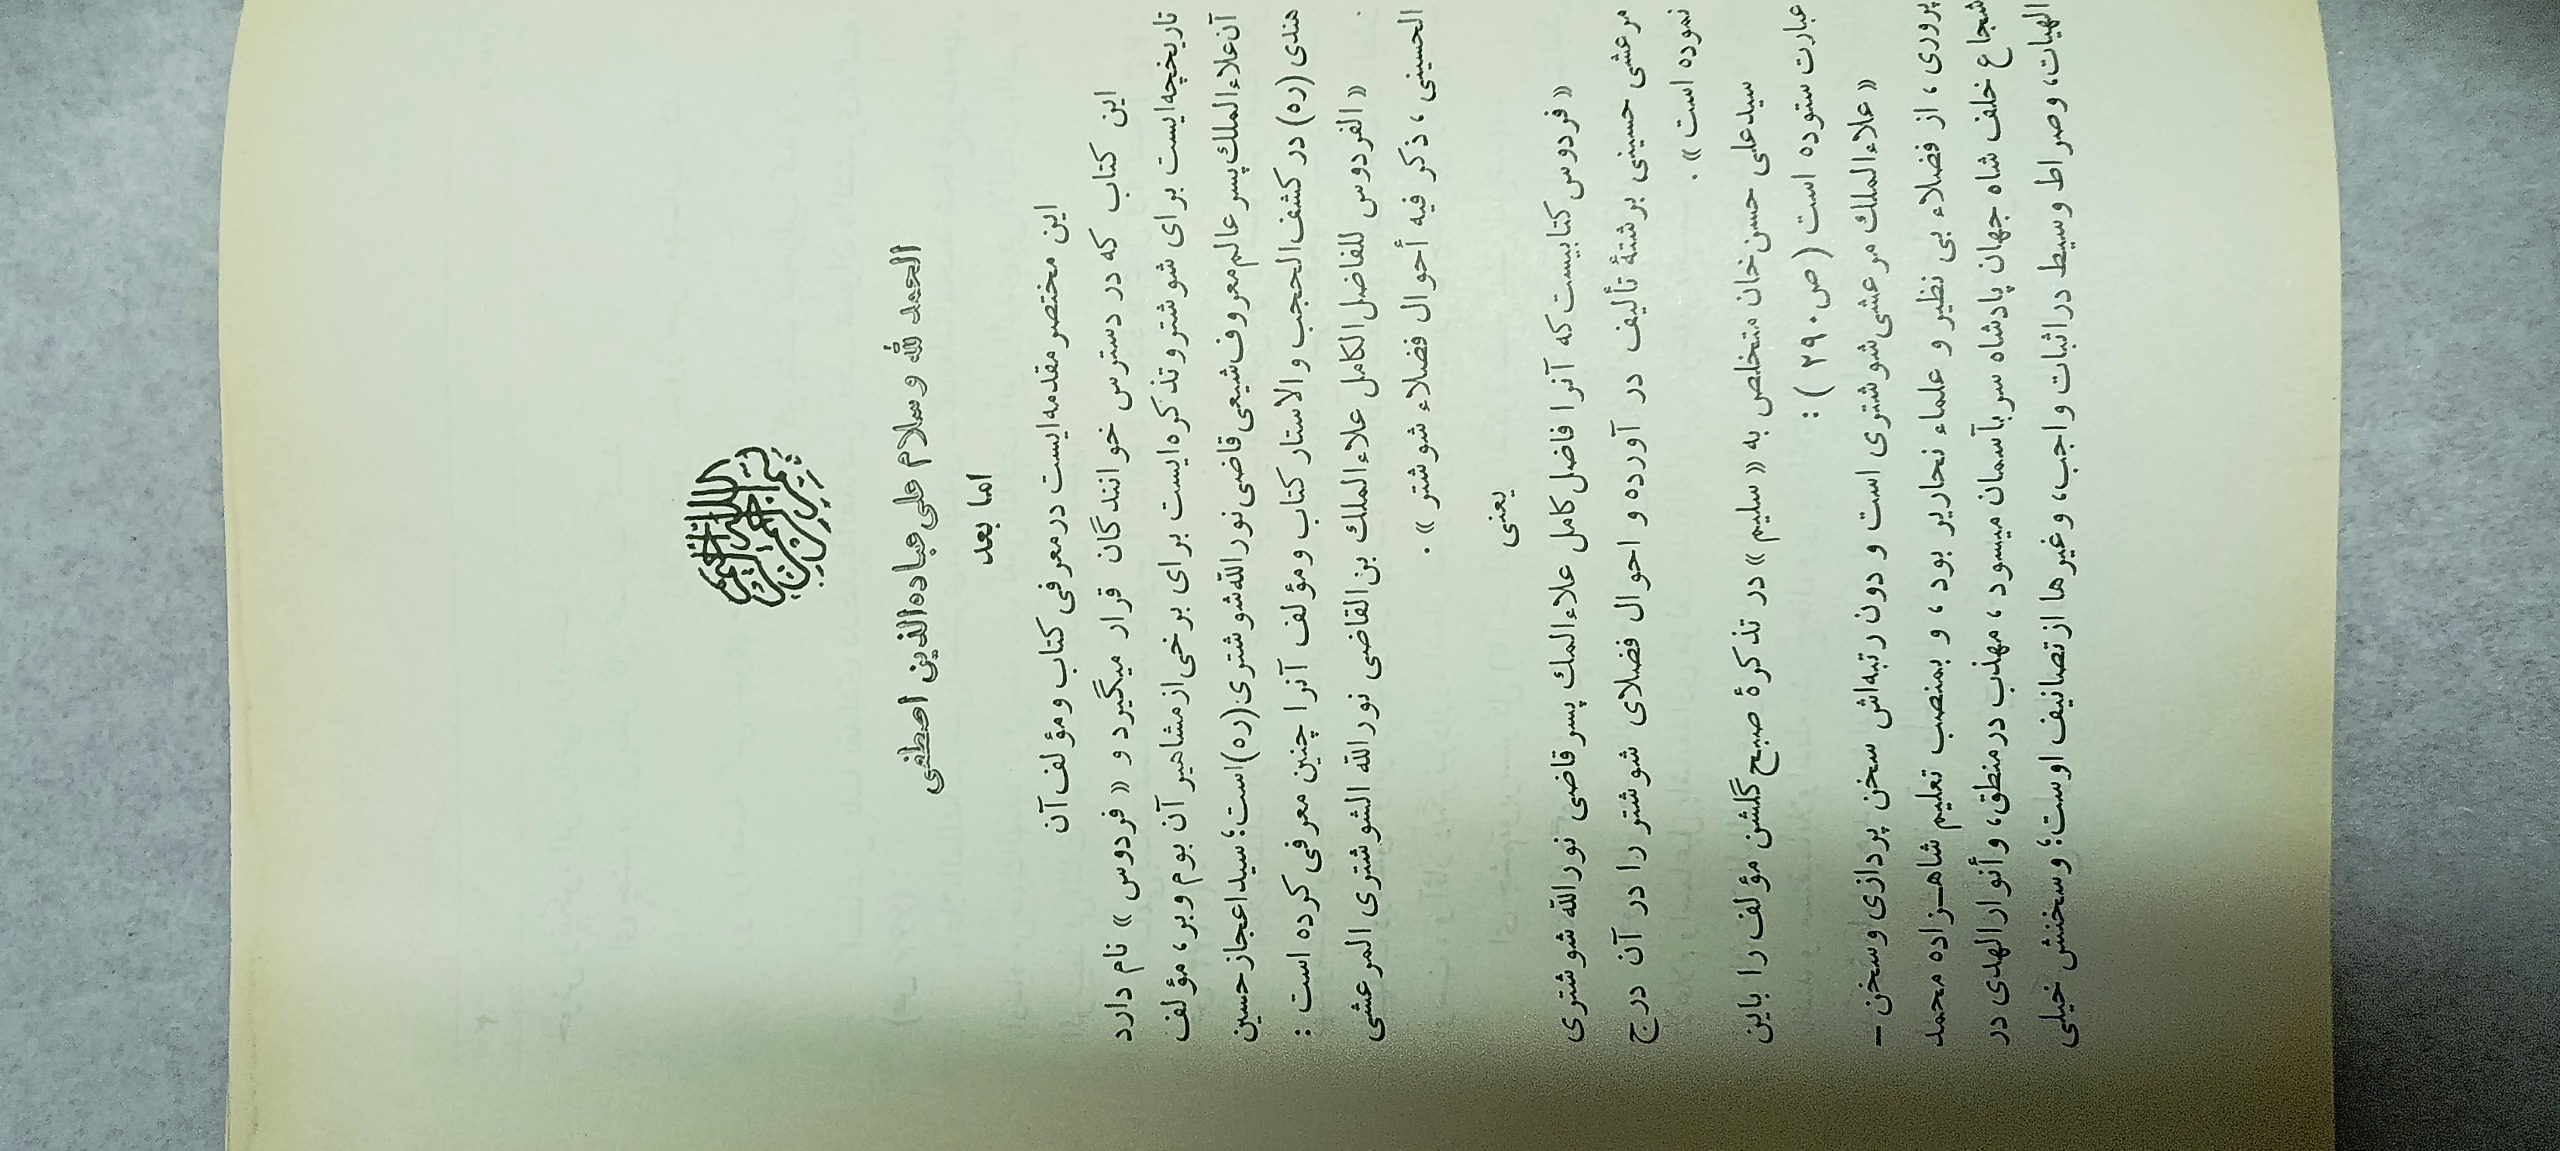 بسم الله الرحمن الرحيم
الحمد لله و سلام علی عباده الذین اصطفی
اما بعد
این مختصر مقدمه ایست در معرفی کتاب و مؤلف آن
این کتاب که در دسترس خوانندگان قرار میگیرد و «فردوس» نام دارد
تاریخچه ایست برای شوشتر و تذکره ایست برای برخی از مشاهیر آن بوم و بر، مؤلف
آن علاء الملک پسر عالم معروف شیعی قاضی نور الله شوشتری (ره) است؛ سید اعجاز حسین
هندی (ره) در کشف الحجب و الاستار کتاب و مؤلف آنرا چنین معرفی کرده است :
«الفردوس للفاضل الکامل علاء الملک بن القاضی نور الله الشوشتری المرعشی
الحسینی ، ذکر فیه أحوال فضلاء شوشتر» .
یعنی
«فردوس کتابیست که آنرا فاضل کامل علاء الملک پسر قاضی نور الله شوشتری
مرعشی حسینی برشتهٔ تألیف در آورده و احوال فضلای شوشتر را در آن درج
نموده است» .
سید علی حسن خان متخلص به «سلیم» در تذکرهٔ صبح گلشن مؤلف را باین
عبارت ستوده است (ص ۲۹۰) :
«علاء الملک مرعشی شوشتری است و دون رتبه اش سخن پردازی و سخن -
پروری ، از فضلاء بی نظیر و علماء نحاریر بود ، و بمنصب تعلیم شاهـزاده محمد
شجاع خلف شاه جهان پادشاه سر بآسمان میسود ، مهذب در منطق، و أنوار الهدی در
الهیات، و صراط وسیط در اثبات واجب، و غیرها از تصانیف اوست؛ و سخنش خیلی